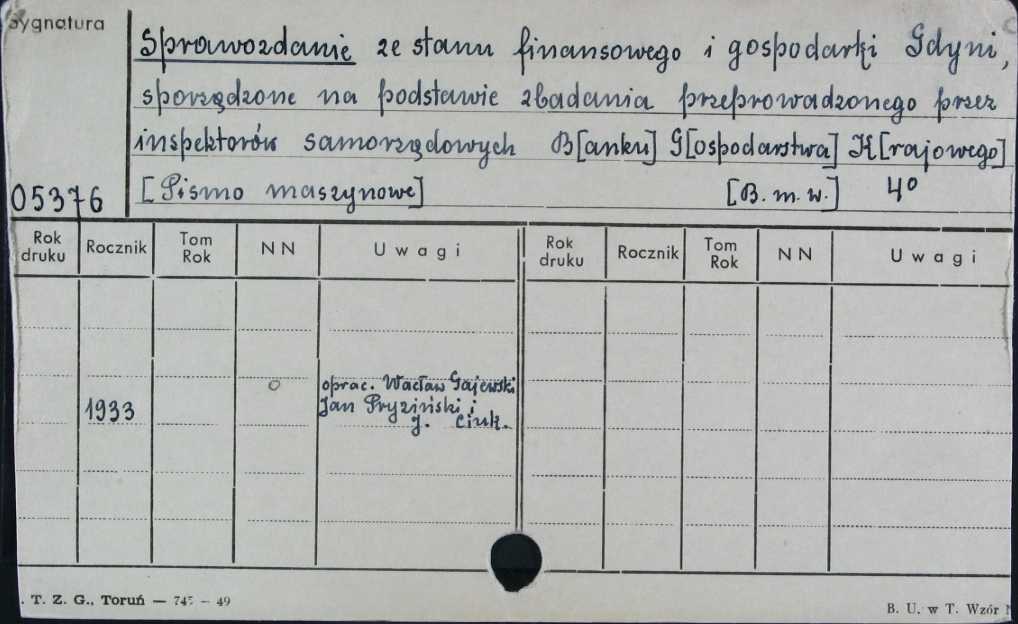 Sygnatura
Sprawozdanie ze stanu finansowego i gospodarki Gdyni,
sporządzone na podstawie zbadania przeprowadzonego przez
inspektorów samorządowych B[anku] G[ospodarstwa] K[rajowego]
05376 [Pismo maszynowe] [B. m. w.] 4º
Rok druku Rocznik Tom Rok NN Uwagi Rok druku Rocznik Tom Rok NN Uwagi
oprac. Wacław Gajewski
1933 Jan Pryziński i
J. Ciuk.
. T. Z. G., Toruń — 745 – 49
B. U. w T. Wzór